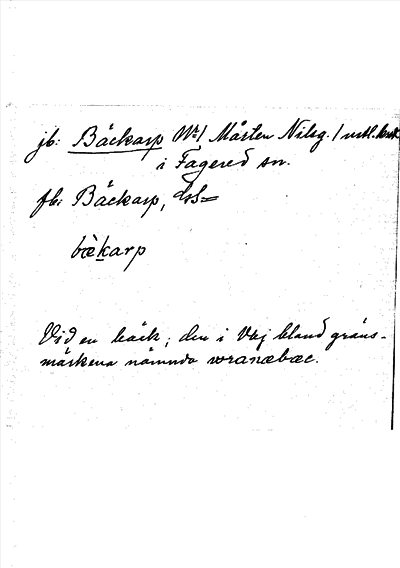 jb: Bäckarp Nr 1 Mårten Nilsg. / utl. krt
i Fagered sn.
fb: Bäckarp,
bækarp
Vid en bäck; den i Vkj bland gräns-
märkena nämnda wranæbæc.